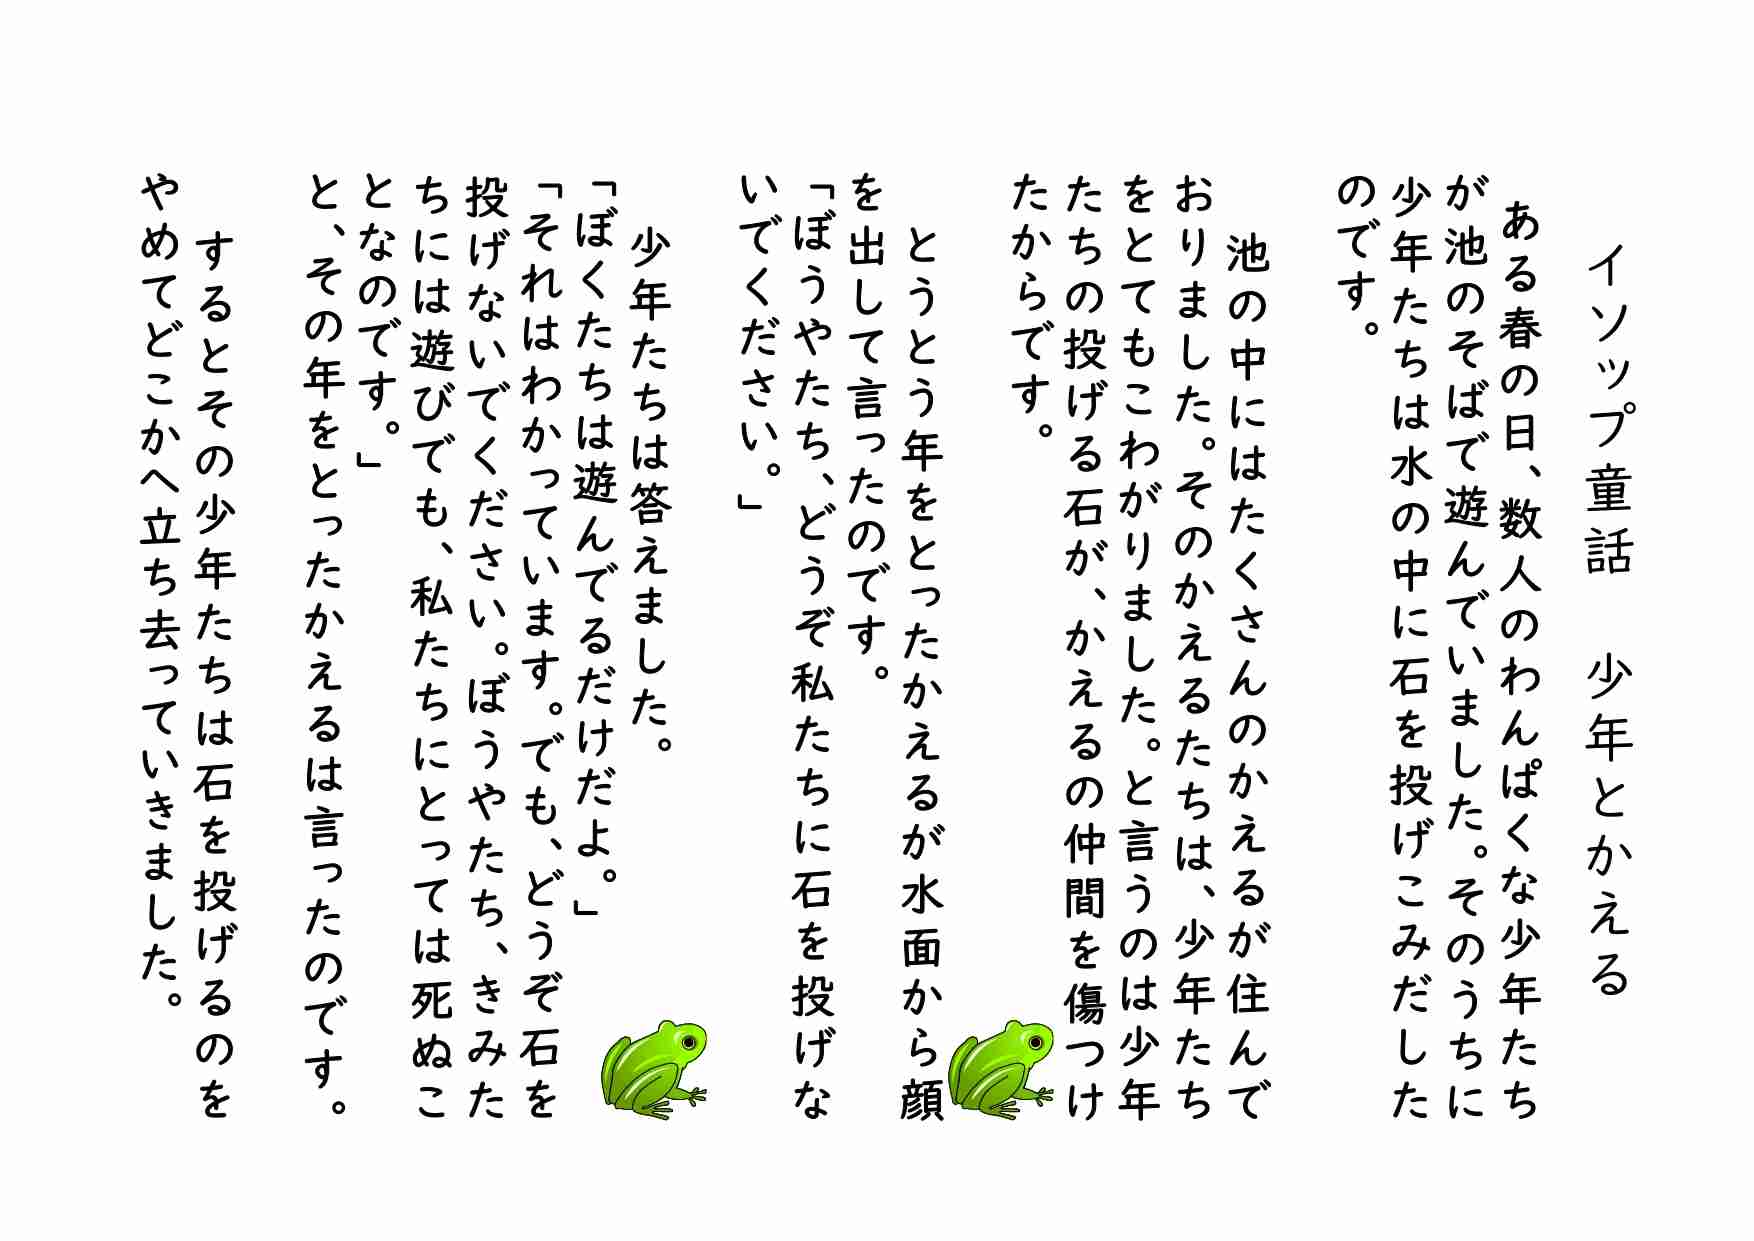 イソップ童話　少年とかえる
ある春の日、数人のわんぱくな少年たち
が池のそばで遊んでいました。そのうちに
少年たちは水の中に石を投げこみだした
のです。
池の中にはたくさんのかえるが住んで
おりました。そのかえるたちは、少年たち
をとてもこわがりました。と言うのは少年
たちの投げる石が、かえるの仲間を傷つけ
たからです。
とうとう年をとったかえるが水面から顔
を出して言ったのです。
「ぼうやたち、どうぞ私たちに石を投げな
いでください。」
少年たちは答えました。
「ぼくたちは遊んでるだけだよ。」
「それはわかっています。でも、どうぞ石を
投げないでください。ぼうやたち、きみた
ちには遊びでも、私たちにとっては死ぬこ
となのです。」
と、その年をとったかえるは言ったのです。
するとその少年たちは石を投げるのを
やめてどこかへ立ち去っていきました。